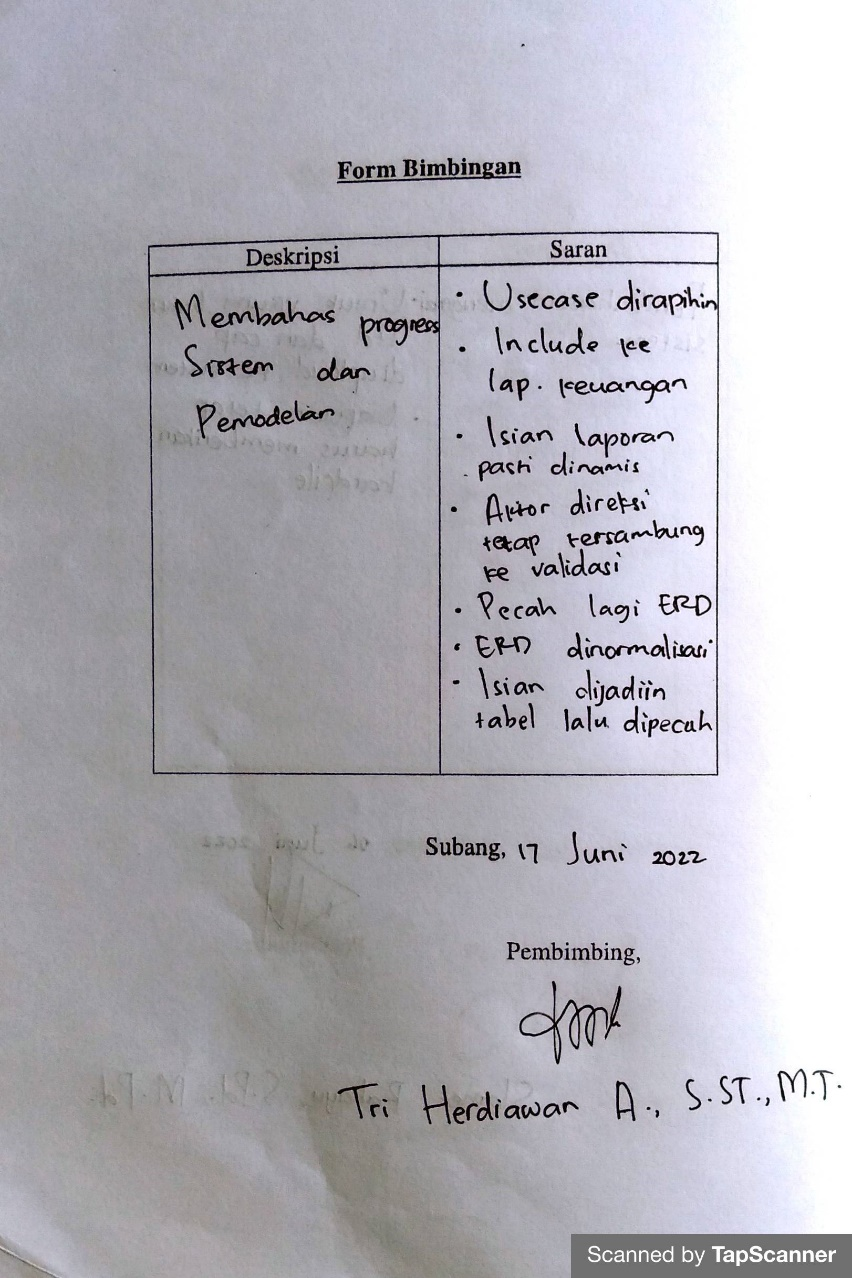 Form Bimbingan
Deskripsi
Membahas progress
Sistem dan
Pemodelan
Saran
• Usecase dirapihin
• Include ke
lap. keuangan
• Isian laporan
pasti dinamis
• Aktor direksi
tetap tersambung
ke validasi
• Pecah lagi ERD
• ERD dinormalisasi
- Isian dijadiin
tabel lalu dipecah
Subang, 17 Juni 2022
Pembimbing,
Tri Herdiawan A., S.ST., M.T.
Scanned by TapScanner